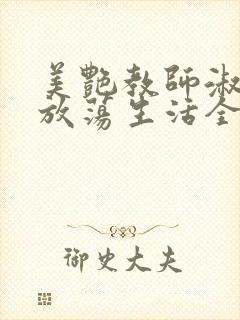 美艷教師淑
放蕩生活全
御史大夫